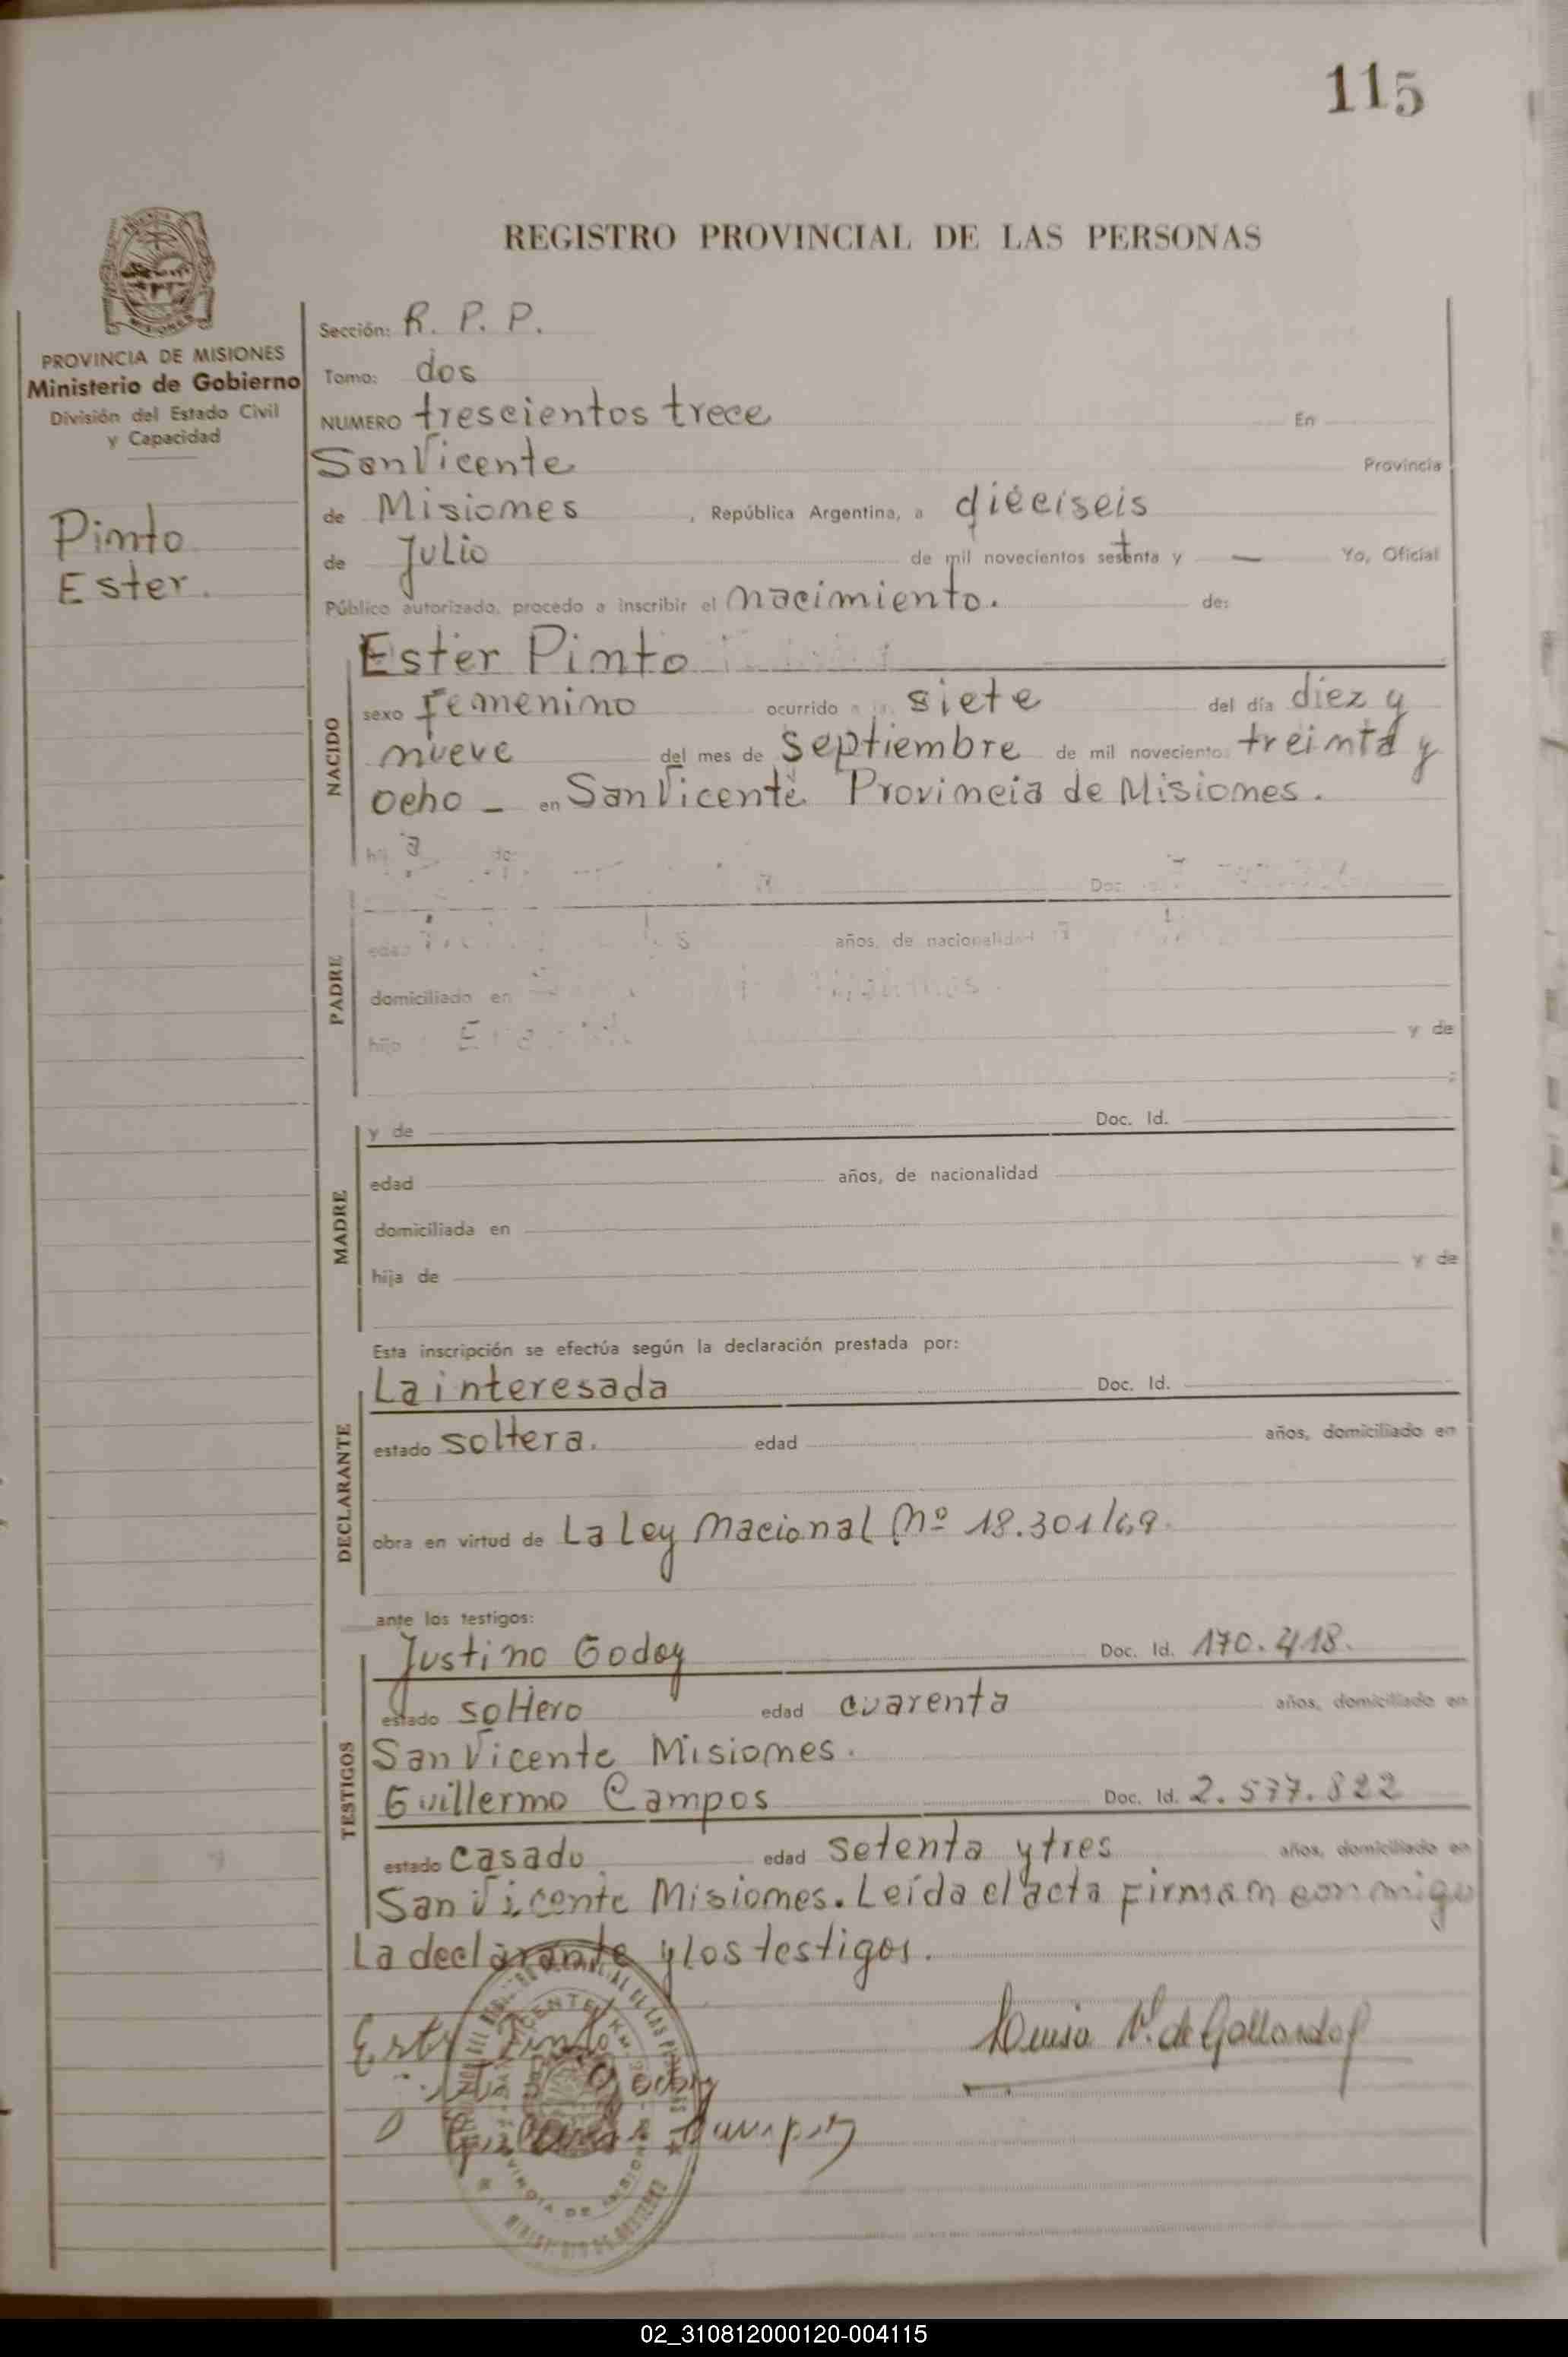 115
REGISTRO PROVINCIAL DE LAS PERSONAS
PROVINCIA DE MISIONES
Ministerio de Gobierno
División del Estado Civil
y Capacidad
Pinto
Ester.
Sección: R. P. P.
Tomo: dos
NUMERO trescientos trece En
San Vicente Provincia
de Misiones, República Argentina, a dieciseis
de Julio de mil novecientos setenta y — Yo, Oficial
Público autorizado, procedo a inscribir el nacimiento. de:
NACIDO
Ester Pinto
sexo femenino ocurrido a la siete del día diez y
nueve del mes de septiembre de mil noveciento treinta y
ocho - en San Vicente Provincia de Misiones.
hij a de
Doc.
PADRE
edad años, de nacionalidad
domiciliado en
hijo y de
MADRE
y de Doc. Id.
edad años, de nacionalidad
domiciliada en
hija de y de
Esta inscripción se efectúa según la declaración prestada por:
DECLARANTE
La interesada Doc. Id.
estado soltera. edad años, domiciliado en
obra en virtud de La Ley Nacional Nº 18.301/69.
ante los testigos:
TESTIGOS
Justino Godoy Doc. Id. 170.418.
estado soltero edad cuarenta años, domiciliado en
San Vicente Misiones.
Guillermo Campos Doc. Id. 2.577.822
estado casado. edad setenta y tres años, domiciliado en
San Vicente Misiones. Leída el acta firman conmigo
La declarante y los testigos.
Luisa V. de Gallardo
Ester Pinto
02_310812000120-004115